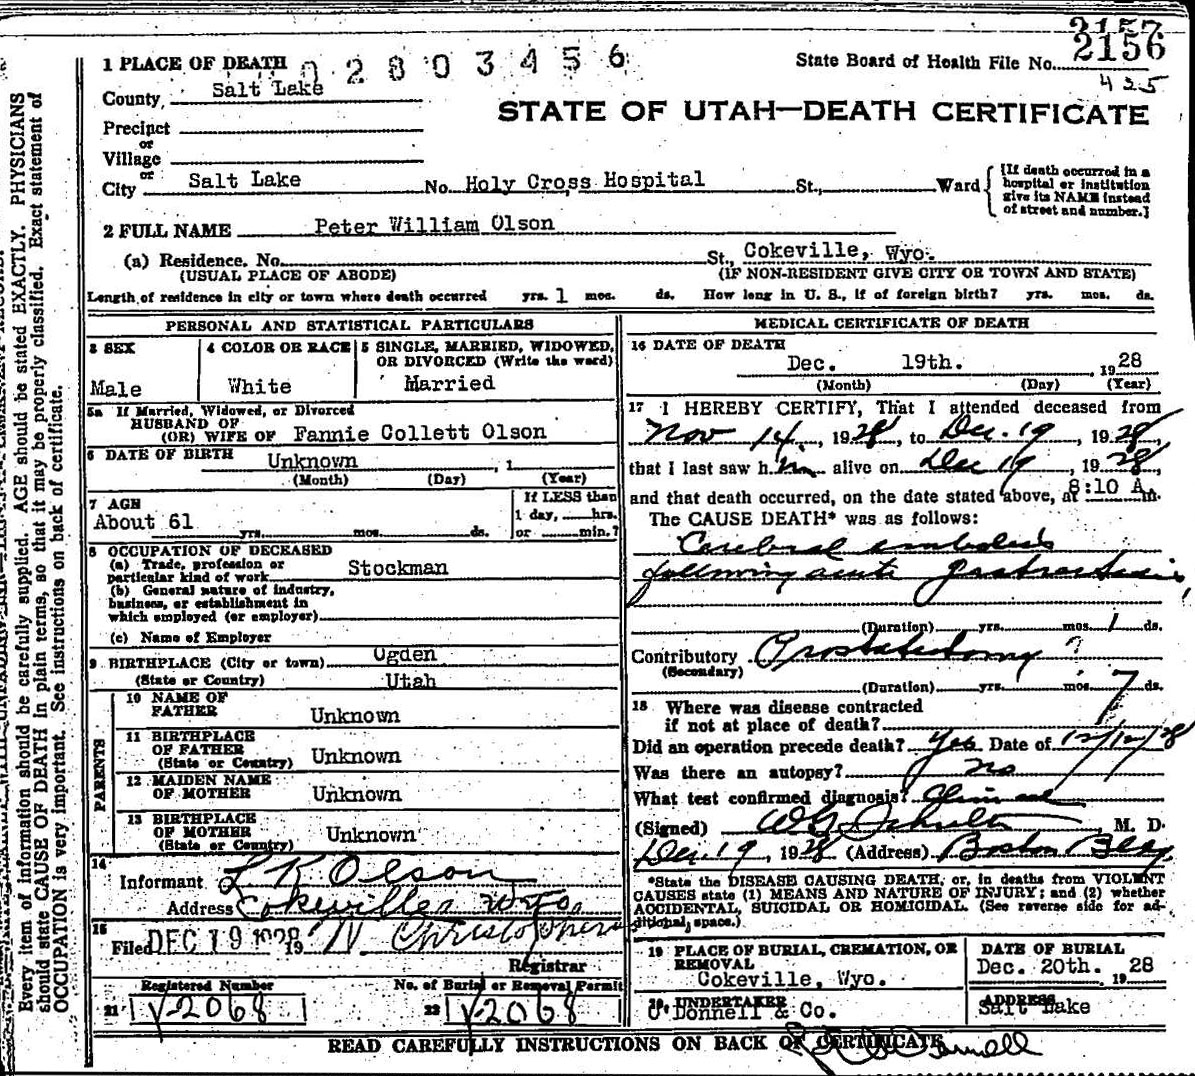 2157
2156
1 PLACE OF DEATH 02803456
State Board of Health File No.
425
County Salt Lake
STATE OF UTAH—DEATH CERTIFICATE
Precinct
or
Village
or
City Salt Lake No. Holy Cross Hospital St., Ward
[If death occurred in a
hospital or institution
give its NAME instead
of street and number.]
2 FULL NAME Peter William Olson
(a) Residence. No. St., Cokeville, Wyo.
(USUAL PLACE OF ABODE) (IF NON-RESIDENT GIVE CITY OR TOWN AND STATE)
Length of residence in city or town where death occurred yrs. 1 mos. ds. How long in U. S., if of foreign birth? yrs. mos. ds.
PERSONAL AND STATISTICAL PARTICULARS
3 SEX
Male
4 COLOR OR RACE
White
5 SINGLE, MARRIED, WIDOWED,
OR DIVORCED (Write the word)
Married
5a If Married, Widowed, or Divorced
HUSBAND OF
(OR) WIFE OF Fannie Collett Olson
6 DATE OF BIRTH Unknown , 1
(Month) (Day) (Year)
7 AGE
About 61
yrs. mos. ds.
If LESS than
1 day, hrs.
or min.?
8 OCCUPATION OF DECEASED
(a) Trade, profession or
particular kind of work Stockman
(b) General nature of industry,
business, or establishment in
which employed (or employer)
(c) Name of Employer
9 BIRTHPLACE (City or town) Ogden
(State or Country) Utah
PARENTS
10 NAME OF
FATHER Unknown
11 BIRTHPLACE
OF FATHER
(State or Country) Unknown
12 MAIDEN NAME
OF MOTHER Unknown
13 BIRTHPLACE
OF MOTHER
(State or Country) Unknown
14
Informant L K Olson
Address Cokeville Wyo.
15
Filed DEC 19 1928 19
Registrar
Registered Number
21 V-2068
No. of Burial or Removal Permit
22 V-2068
MEDICAL CERTIFICATE OF DEATH
16 DATE OF DEATH
Dec. 19th. , 1928
(Month) (Day) (Year)
17 I HEREBY CERTIFY, That I attended deceased from
Nov 14, 1928, to Dec. 19, 1928,
that I last saw him alive on Dec 19, 1928,
and that death occurred, on the date stated above, at 8:10 A.m.
The CAUSE DEATH* was as follows:
Cerebral embolus
following acute
(Duration) yrs. mos. 1 ds.
Contributory Prostatectomy ?
(Secondary)
(Duration) yrs. mos. 7 ds.
18 Where was disease contracted
if not at place of death?
Did an operation precede death? Yes Date of 12/12/28
Was there an autopsy? no
What test confirmed diagnosis? Clinical
(Signed) , M. D.
Dec. 19, 1928 (Address) Boston Bldg.
*State the DISEASE CAUSING DEATH, or, in deaths from VIOLENT
CAUSES state (1) MEANS AND NATURE OF INJURY; and (2) whether
ACCIDENTAL, SUICIDAL OR HOMICIDAL. (See reverse side for ad-
ditional space.)
19 PLACE OF BURIAL, CREMATION, OR
REMOVAL
Cokeville, Wyo.
DATE OF BURIAL
Dec. 20th. 1928
20. UNDERTAKER
O'Donnell & Co.
ADDRESS
Salt Lake
READ CAREFULLY INSTRUCTIONS ON BACK OF CERTIFICATE
Every item of information should be carefully supplied. AGE should be stated EXACTLY. PHYSICIANS
should state CAUSE OF DEATH in plain terms, so that it may be properly classified. Exact statement of
OCCUPATION is very important. See instructions on back of certificate.